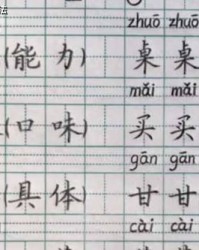 zhuō zhuō
(能 力) 桌 桌
mǎi mǎi
(口 味) 买 买
gān gān
(具 体) 甘 甘
cài cài